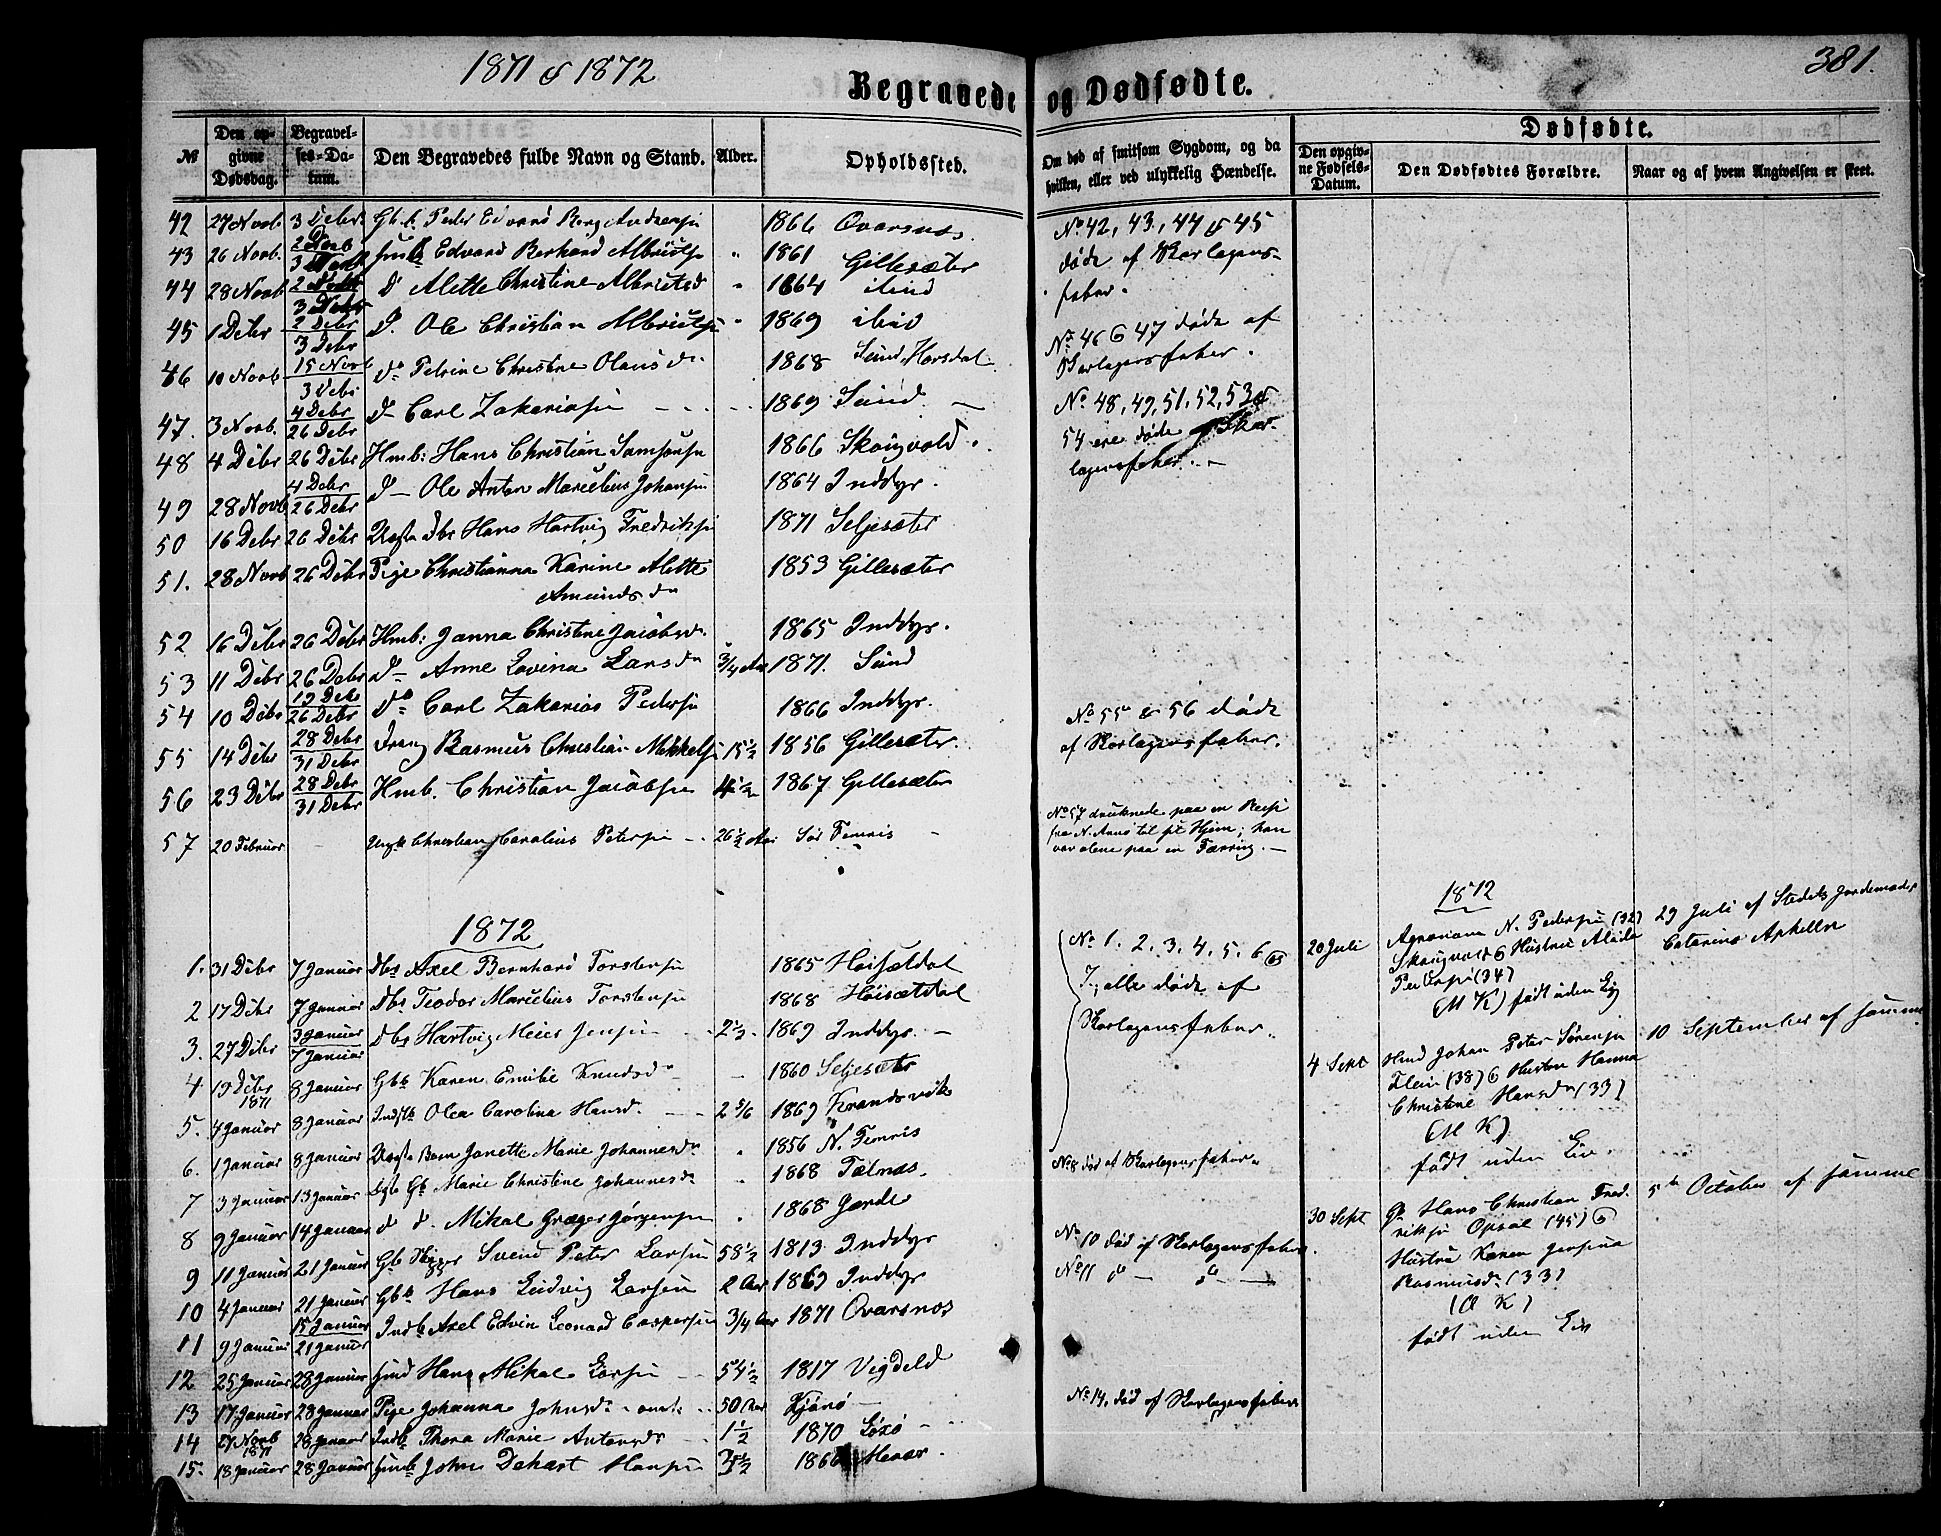 1871 & 1872
381.
Begravede og Dødfødte.
Dødfødte.
№
Den op-
givne
Dødsdag.
Begravel-
ses-Da-
tum.
Den Begravedes fulde Navn og Stand.
Alder.
Opholdssted.
Om død af smitsom Sygdom, og da
hvilken, eller ved ulykkelig Hændelse.
Den opgiv-
ne Fødsels-
Datum.
Den Dødfødtes Forældre.
Naar og af hvem Angivelsen er skeet.
42 27 Novb 3 Debr Gb. Peder Edvard Berg Andersen 1866 Ovarsnæs
43 26 Novb. Edvard Berhard Albrigts 1861 Gillesæter
44 28 Novb 3 Debr D Alette Christine Albrigtsd 1864 ibid
45 1 Debr 2 Debr 3 Debr D. Ole Christian Albrigts 1869 ibid
46 10 Novb 15 Novb 3 Debr Do Petrine Christine Olausdr 1868 Sund, Horsdal
47. 3 Novb. 4 Debr 26 Debr D Carl Zakariasen 1869 Sund
48 4 Debr 26 Debr Hmb: Hans Christian Samsonsen 1866 Skougvold
49 28 Novb 4 Debr 26 Debr D Ole Anton Marcelius Johansen 1864 Inddyr
50 16 Debr 26 Debr Hans Hartvig Fredriksen 1871 Seljesæter
51. 28 Novb 26 Debr Pige Christianna Karine Alette
Amundsdr 1853 Gillesæter
52 16 Debr 26 Debr Hmb: Janna Christine Jacobsdr 1865 Inddyr.
53 11 Debr 26 Debr D Anne Lovina Larsdr 3/4 Aar 1871. Sund
54 10 Debr 19 Debr 26 Debr Do Carl Zakarias Pedersen 1866 Inddyr.
55 14 Debr 28 Debr 31 Debr Dreng Rasmus Christian Mikkelsen 15 1/2 1856 Gillesæter.
56 23 Debr 28 Debr 31 Debr Hmb. Christian Jacobsen 4 1/2 1867 Gillesæter
57 20 Februar Ungk Christian Carolius Petersen 26 1/2 Aar Sør Femris
No 42, 43, 44 & 45
døde af Skarlagens-
feber.
No 46 & 47 døde af
Skarlagensfeber.
No 48, 49, 51, 52, 53 &
54 ere døde af Skar-
lagensfeber.
No 55 & 56 døde
af Skarlagensfeber.
No 57 druknede paa en Reise
fra N. Arnø til sit Hjem; han
var alene paa en Færing.
1872
1. 31 Debr 7 Januar Dbs Axel Bernhard Torstensen 1865 Høisætdal
2 17 Debr 7 Januar Dbs Teodor Marcelius Torstensen 1868 Høisætdal
3. 27 Debr 3 Januar 7 Januar Dbs Hartvig Meier Jensen 2 1/2 1869 Inddyr
4 19 Debr 1871 8 Januar Gbs Karen Emilie Knudsdr 1860 Seljesæter
5. 4 Januar 8 Januar Indstb Olea Carolina Hansdr 2 5/6 1869 Krandsvik
6. 1 Januar 8 Januar Barn Janette Marie Johannesdr 1856 N. Femris
7 3 Januar 13 Januar Gb Marie Christine Johannesdr 1868 Tælnæs
8 9 Januar 14 Januar d d. Mikal Græger Jørgensen 1868 Gjerde
9 11 Januar 21 Januar Gb Svend Peter Larsen 58 1/2 1813 Inddyr
10 4 Januar 21 Januar Gbs Hans Ludvig Larsen 2 Aar 1869 Inddyr
11 9 Januar 15 Januar 21 Januar Indb Axel Edvin Leonard Caspersen 3/4 Aar 1871 Ovarsnæs
12 25 Januar 28 Januar Hans Mikal Larsen 54 1/2 1817 Vigdeld
13 17 Januar 28 Januar Pige Johanna Johnsdr 50 Aar Kjønø
14 27 Novb 1871 28 Januar Indb Thora Marie Antonsdr 1 1/2 1870 Sørø
15. 18 Januar 28 Januar John Dehart Hansen 1866
No 1. 2. 3. 4. 5. 6 &
7, alle døde af
Skarlagensfeber.
No 8 død af Skarlagensfeber.
No 10 død af Skarlagensfeber
No 11 do do
No 14, død af Skarlagensfeber
1872
20 Juli
Agronom N. Pedersen (32)
Skougvold & Hustru
Pedersen (34)
(M K) født uden Liv
29 Juli af Stedets Jordemoder
Catarina
4 Sept
Hmd Johan Peter Sørensen
(38) & Hustru Hanna
Christine Hansdr (33)
(M K)
født uden Liv
10 September af samme
30 Sept
Gb Hans Christian Fred-
riksen Opsal (45) &
Hustru Karen
Rasmusdr (33)
(Q K)
født uden Liv
5te October af samme